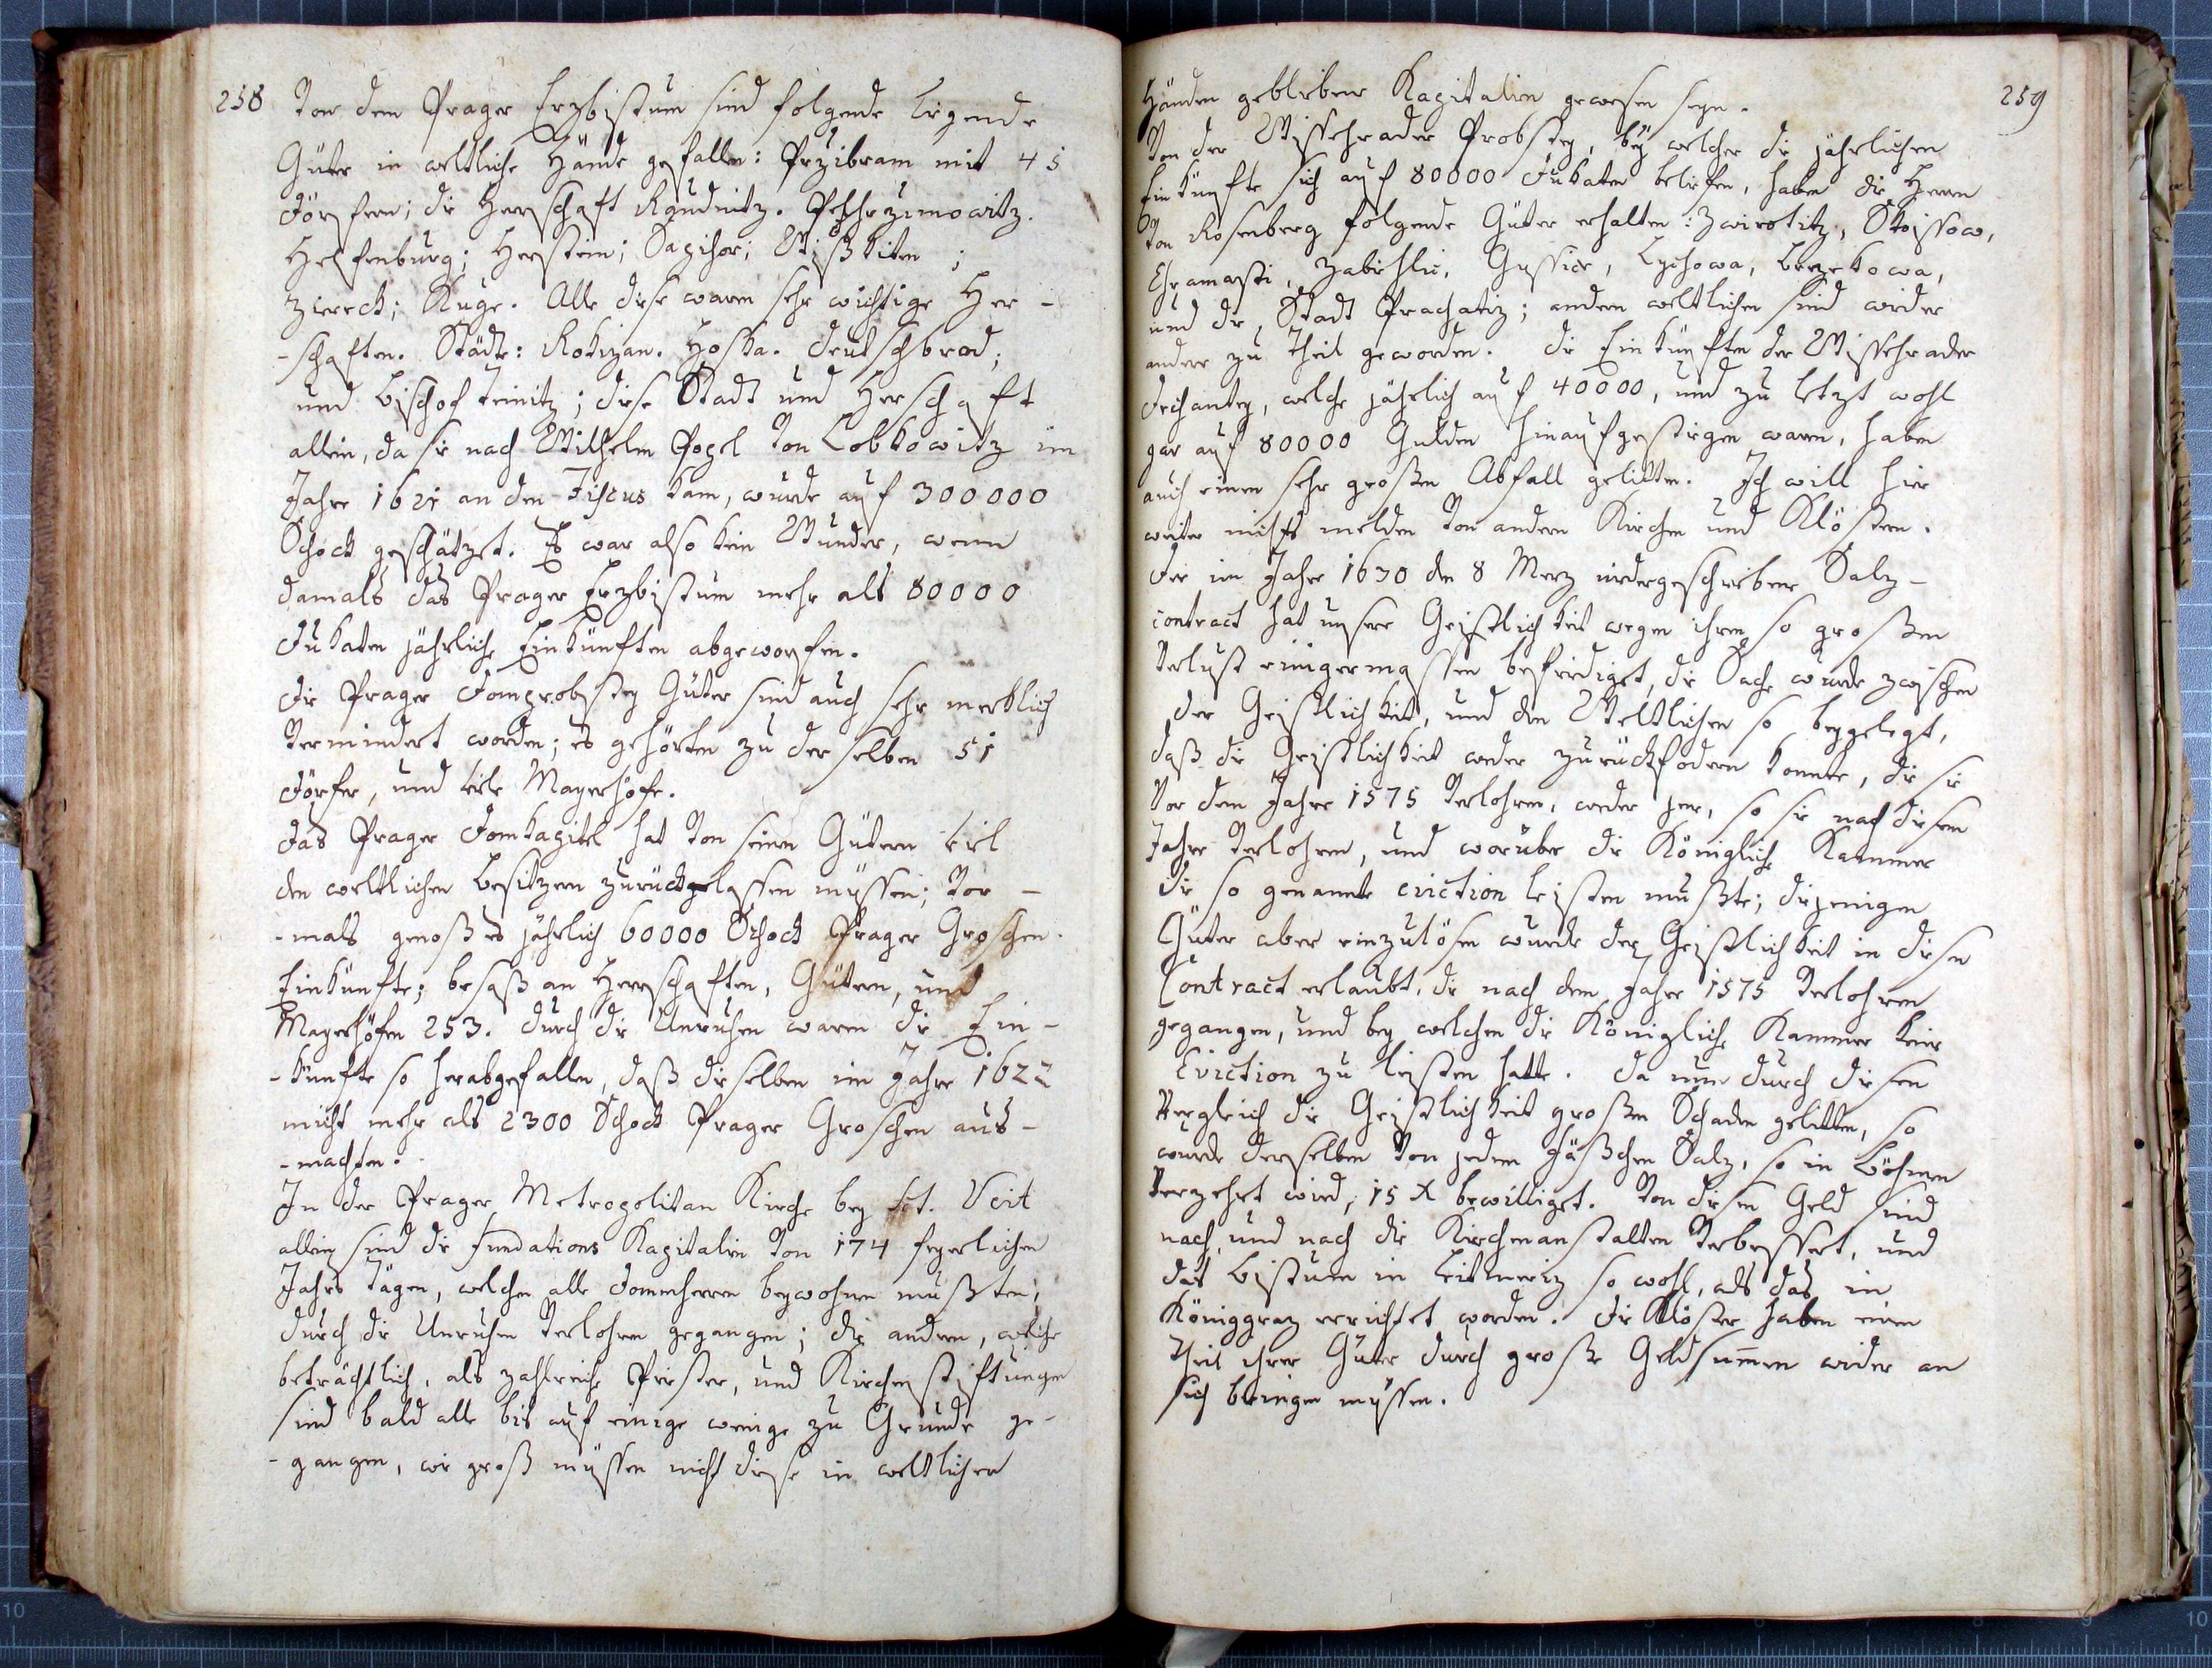 258
Von dem Prager Erzbistum sind folgende liegende
Güter in weltliche Hände gefallen: Przibram mit 45
Dörfern; die Herschaft Raudnitz.
Helfenburg; Herstein;
Zwreck; Ruge. Alle diese waren sehr wichtige Her-
-schaften. Städte: Rokizan. Hoska. Deutschbrod;
und Bischof Teinitz; diese Stadt und Herschaft
allein, da sie nach Wilhelm Popel von Lobkowitz im
Jahre 1621 an den Fiscus kam, wurde auf 300000
Schock geschätzet. Es war also kein Wunder, wenn
damals das Prager Erzbistum mehr als 80000
Dukaten jährliche Einkünften abgeworfen.
Die Prager Domprobstey Güter sind auch sehr merklich
vermindert worden; es gehörten zu derselben 51
Dörfer, und viele Mayerhöfe.
Das Prager Domkapitel hat von seinen Gütern viel
den weltlichen Besitzern zurückgelassen müssen; vor-
-mals genoß es jährlich 60000 Schock Prager Groschen
Einkünfte; besaß an Herrschaften, Gütern, und
Mayerhöfen 253. Durch die Unruhen waren die Ein-
-künfte so herabgefallen, daß dieselben im Jahre 1622
nicht mehr als 2300 Schock Prager Groschen aus-
-machten.
In der Prager Metropolitan Kirche bey Sct. Veit
allein sind die fundations Kapitalien von 174 feyerlichen
Jahrs Tägen, welchen alle Domherren beywohnen mußten,
durch die Unruhen verlohren gegangen; die andern, welche
beträchtlich, als zahlreiche Priester, und Kirchenstiftungen
sind bald alle bis auf einige wenige zu Grunde ge-
-gangen, wie groß müssen nicht diese in weltlichen
259
Händen gebliebene Kapitalien gewesen seyn.
Von der Wissehrader Probstey, bey welcher die jährlichen
Einkünfte sich auf 80000 Dukaten beliefen, haben die Herren
von Rosenberg folgende Güter erhalten: Zwirotitz, Stoissow,
Chramasti, Zabiehlic, Gussice, Lychowa, Brzekowa,
und die Stadt Prachatiz; andern weltlichen sind wieder
andere zu theil geworden. Die Einkünften der Wissehrader
Dechantey, welche jährlich auf 40000, und zu letzt wohl
gar auf 80000 Gulden hinaufgestiegen waren, haben
auch einen sehr großen Abfall gelitten. Ich will hier
weiter nichts melden von andern Kirchen und Klöstern.
Der im Jahre 1630 den 8 Merz niedergeschriebene Salz-
contract hat unsere Geistlichkeit wegen ihren so großen
Verlust einigermassen befriediget, die Sache wurde zwischen
der Geistlichkeit, und den Weltlichen so beygelegt,
daß die Geistlichkeit weder zurückfodern konnte, die sie
vor dem Jahre 1575 verlohren, weder jene, so sie nach diesem
Jahre verlohren, und worüber die Königliche Kammer
die so genannte eviction leisten mußte; diejenigen
Güter aber einzulösen wurde der Geistlichkeit in diesen
Contract erlaubt, die nach dem Jahre 1575 verlohren
gegangen, und bey welchen die Königliche Kammer keine
Eviction zu leisten hatte. Da nun durch diesen
Vergleich die Geistlichkeit großen Schaden gelitten, so
wurde derselben von jedem Fäßchen Salz, so in Böhmen
verzehrt wird, 15 x bewilliget. Von diesem Geld sind
nach, und nach die Kirchenanstalten verbessert, und
das Bistum in Leitmeriz so wohl, als das in
Königgraz errichtet worden. Die Klöster haben einen
theil ihrer Güter durch große Geldsummen wider an
sich bringen müssen.